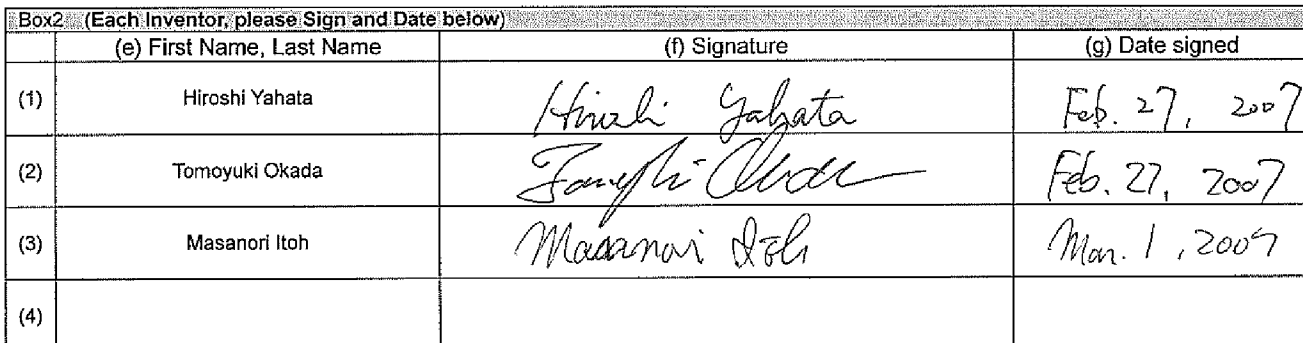 Box2 (Each Inventor, please Sign and Date below)
(e) First Name, Last Name (f) Signature (g) Date signed
(1) Hiroshi Yahata Hiroshi Yahata Feb. 27, 2007
(2) Tomoyuki Okada Feb. 27, 2007
(3) Masanori Itoh Masanori Itoh Mar. 1, 2007
(4)